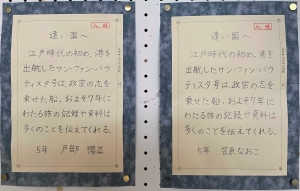 入選
遠い国へ
江戸時代の初め、港を
出航したサン・ファン・バウ
ティスタ号は、政宗の志を
乗せた船、およそ7年に
わたる旅の記録や資料は
多くのことを伝えてくれる。
5年 戸部 陽
入選
遠い国へ
江戸時代の初め、港を
出航したサン・ファン・バウ
ティスタ号は、政宗の志を
乗せた船、およそ7年に
わたる旅の記録や資料は
多くのことを伝えてくれる。
5年 笠原 なおこ